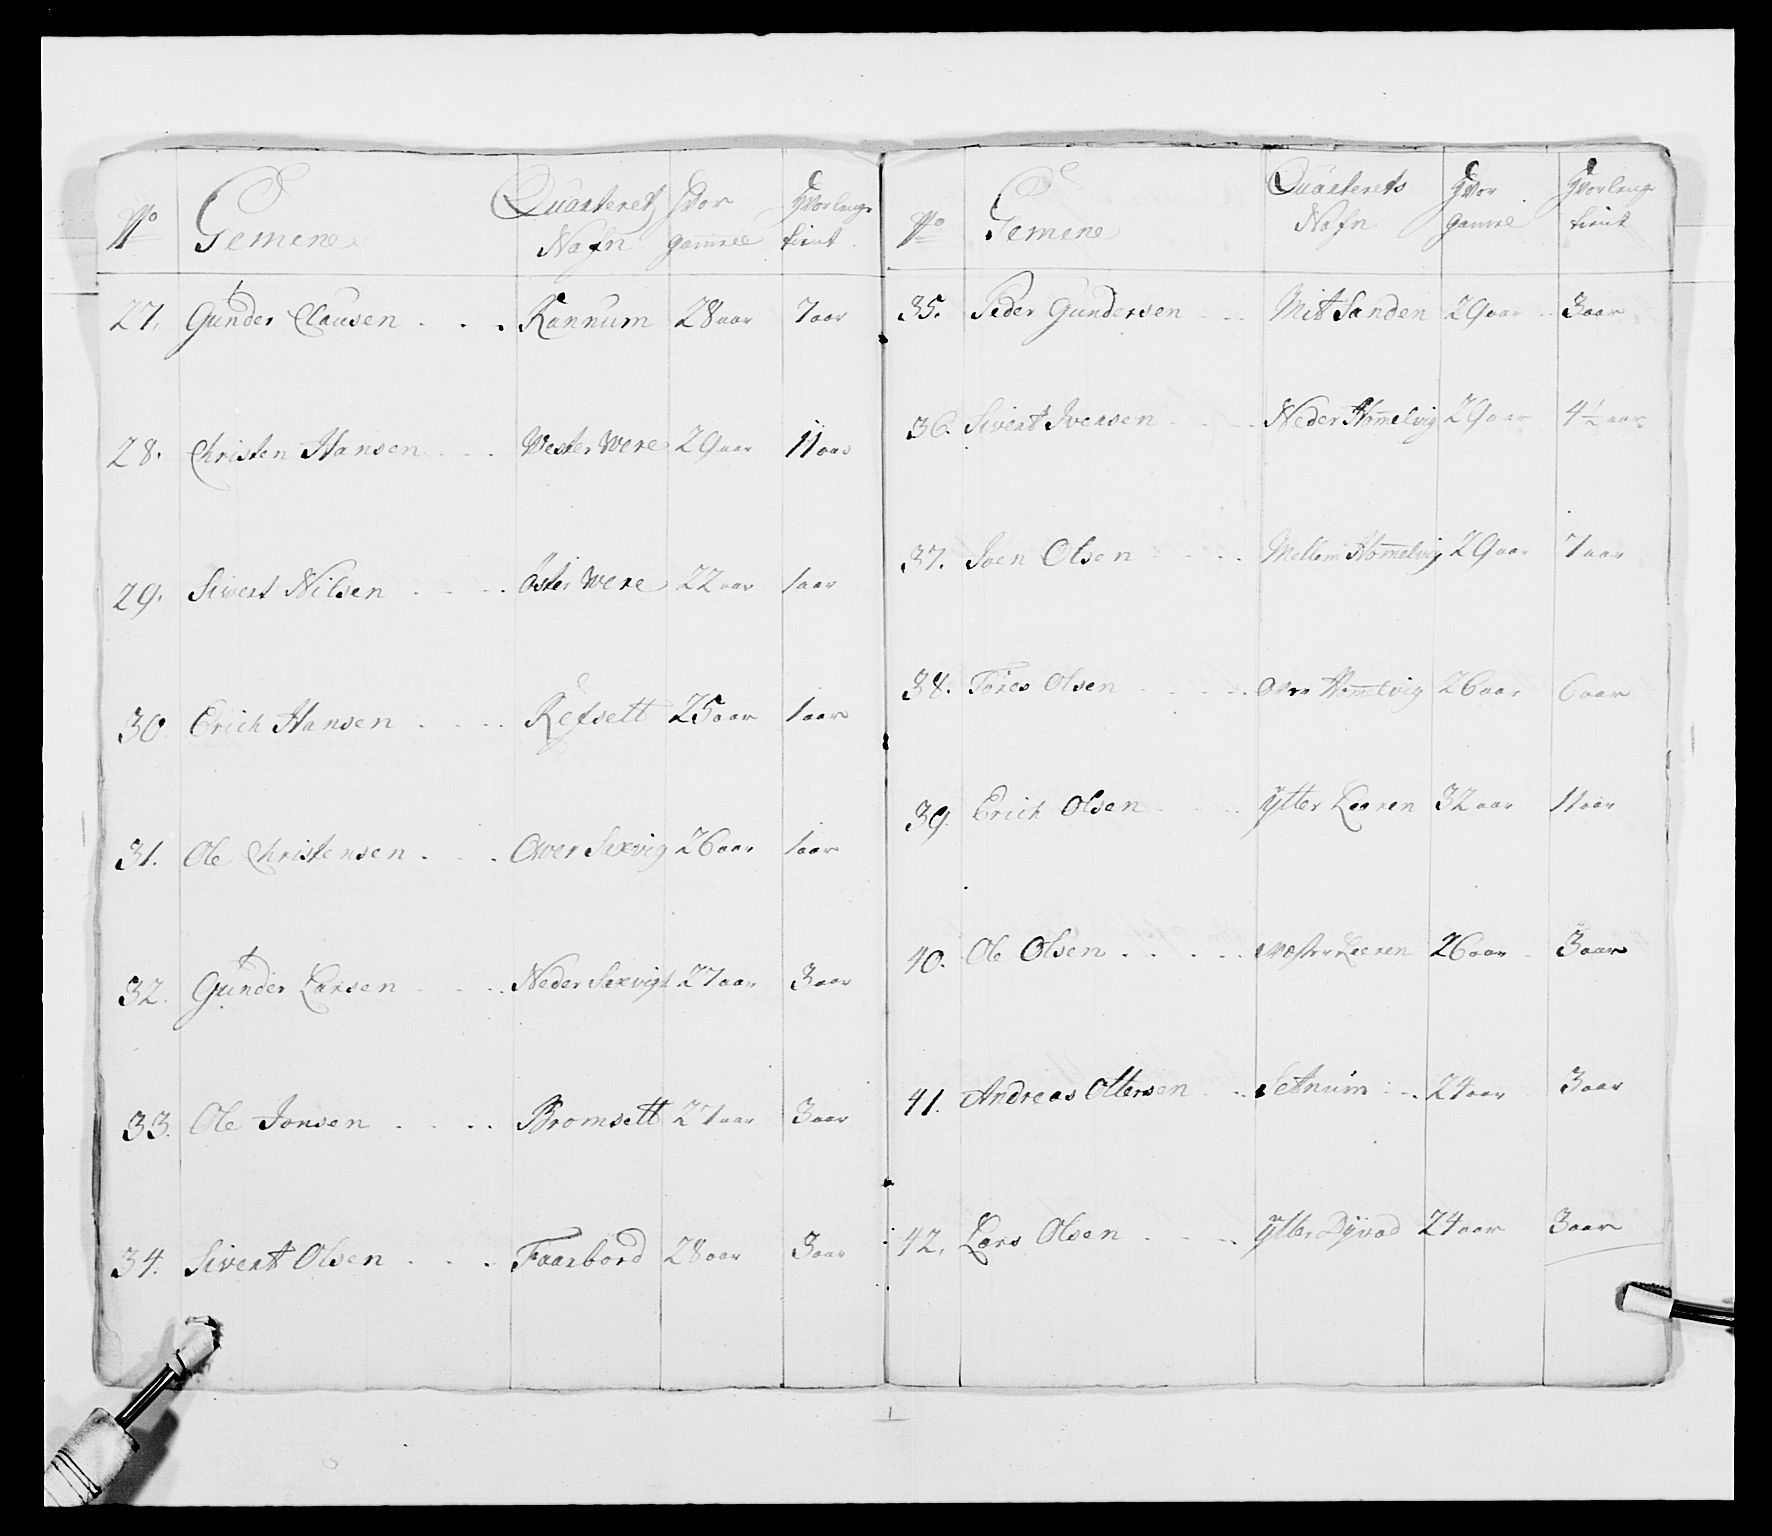 No Gemene Quarterets Nafn Hvor gamele Hvorlenge tient
27. Gunder Clausen . . . Rannum 28 aar 7 aar
28. Christen Hansen . . . Wester Were 29 aar 11 aar
29. Sivert Nilsen . . . . Öster Were 22 aar 1 aar
30. Erich Hansen . . . . Refsett 25 aar 1 aar
31. Ole Christensen . . . Over Saxvig 26 aar 1 aar
32. Gunder Larsen . . . . Neder Saxvigh 27 aar 3 aar
33. Ole Jonsen . . . . Bromsett 27 aar 3 aar
34. Sivert Olsen . . . Faarbord 28 aar 3 aar
No Gemene Quarterets Nafn Hvor gamle Hvorlenge tient
35. Peder Gundersen . . . Mit Sanden 29 aar . . 3 aar
36. Sivert Iversen . . . . Neder Hom̄elvig 29 aar 4 ½ aar
37. Joen Olsen . . . . Mellem Hom̄elvig 29 aar 7 aar
38. Töres Olsen . . . . Over Hom̄elvig 26 aar 6 aar
39. Erich Olsen . . . . Ytter Leeren 32 aar 11 aar
40. Ole Olsen . . . . . Wester Leeren 26 aar . 3 aar
41. Andreas Ottersen . . Setnum . . . 24 aar 3 aar
42. Lars Olsen . . . . Ytter Dÿvad 24 aar 3 aar